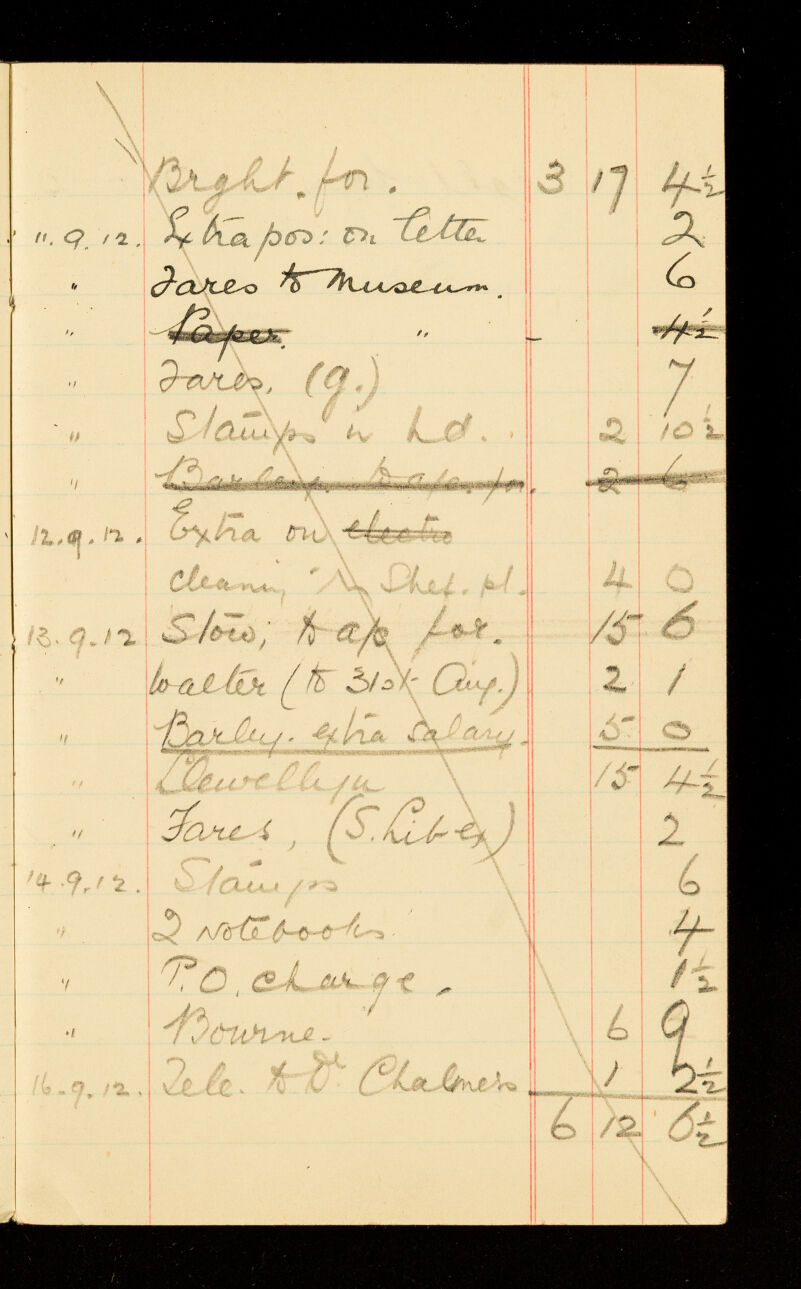 Brght. for. 3 17 4½
11.9.12. Extra pos: on letter 2
" Fares to Museum. 6
" Paper. " - 4½
" Fares. (g.) 7
" Stamps in hd. 2 10½
" Barley. to a/c. for. 2 6
12.9.12. Extra on electro
cleaning Shef. pl. 4 0
13.9.12 Stow; to a/c for. 15 6
" Walter (to 31st Aug.) 2 1
" Barley. extra salary. 5 0
" Llewellyn 15 4½
" Fares, (S. Lib ex) 2
14.9.12. Stamps 6
" 2 Notebooks 4
" P.O. charge. 1½
" Bourne. 6 9
16.9.12. Tele. to Dr. Chalmers 1 2½
6 12 6½